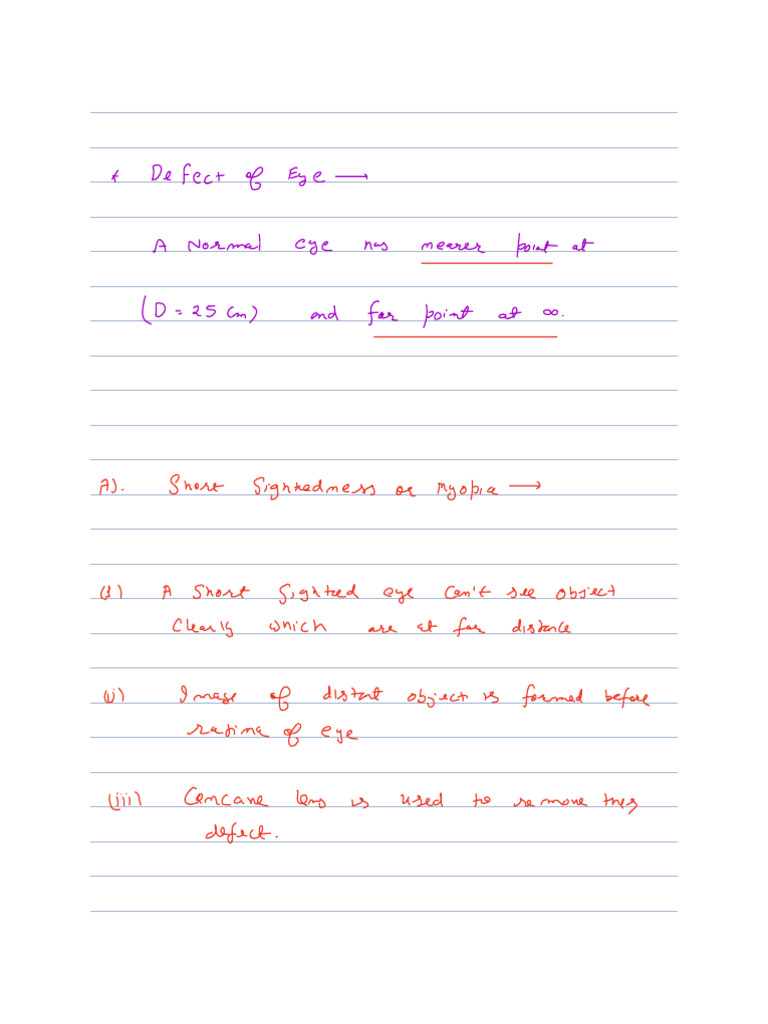 * Defect of Eye →
A Normal eye has nearer point at
(D = 25 cm) and far point at ∞.
A). Short Sightedness or Myopia →
(i) A Short Sighted eye can't see object
Clearly which are at far distance
(ii) Image of distant object is formed before
ratina of eye
(iii) Concave lens is used to remove this
defect.